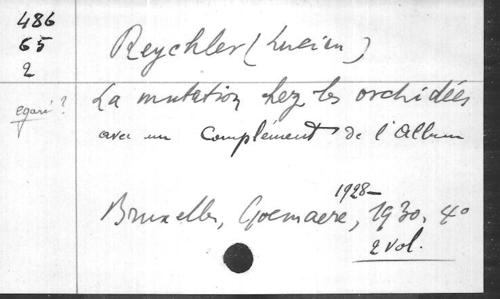 486
65
2
Reychler (Lucien)
egaré?
La mutation chez les orchidées
avec un Complément de l'Album
1928-
Bruxelles, Goemaere, 1930, 4°
2 vol.